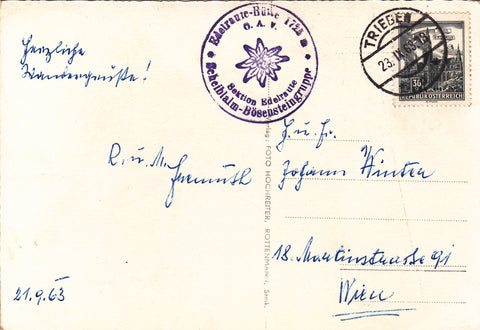 Herzliche
Wandergrüße!
R. u. M.
21.9.63
Edelraute-Hütte 1725 m
Ö. A. V.
Sektion Edelraute
Scheiblalm-Bösensteingruppe
TRIEBEN
REPUBLIK ÖSTERREICH
FOTO HOCHREITER, ROTTENMANN, Stmk.
H. u. Fr.
Johann Winter
18. Martinstrasse 91
Wien